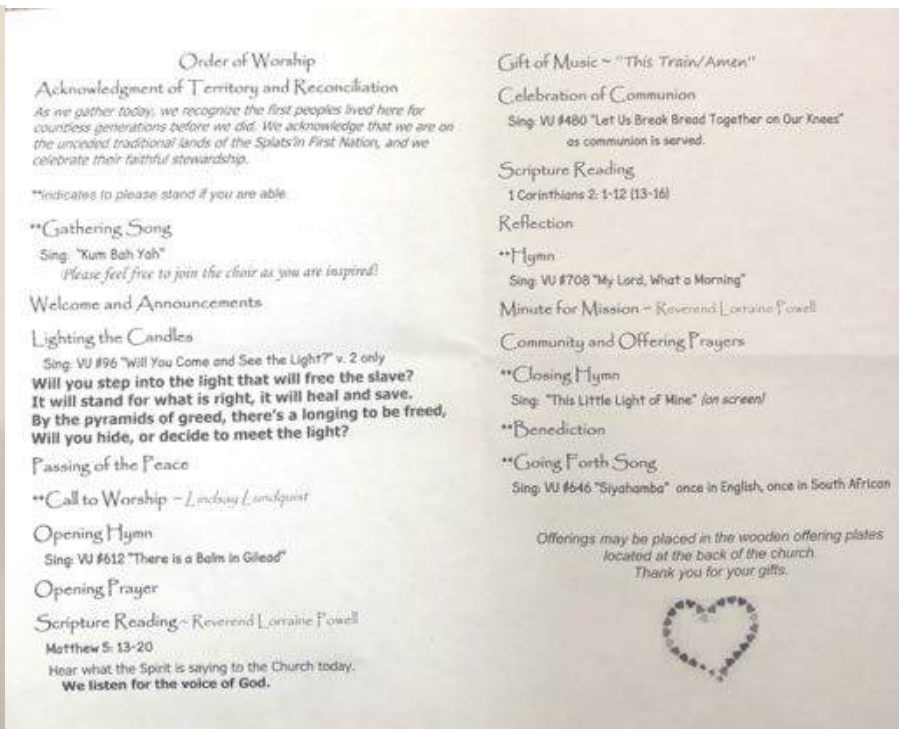 Order of Worship
Acknowledgment of Territory and Reconciliation
As we gather today, we recognize the first peoples lived here for
countless generations before we did. We acknowledge that we are on
the unceded traditional lands of the Splats'in First Nation, and we
celebrate their faithful stewardship.
**indicates to please stand if you are able.
**Gathering Song
Sing: "Kum Bah Yah"
Please feel free to join the choir as you are inspired!
Welcome and Announcements
Lighting the Candles
Sing: VU #96 "Will You Come and See the Light?" v. 2 only
Will you step into the light that will free the slave?
It will stand for what is right, it will heal and save.
By the pyramids of greed, there's a longing to be freed,
Will you hide, or decide to meet the light?
Passing of the Peace
**Call to Worship ~ Lindsay Lundquist
Opening Hymn
Sing: VU #612 "There is a Balm in Gilead"
Opening Prayer
Scripture Reading ~ Reverend Lorraine Powell
Matthew 5: 13-20
Hear what the Spirit is saying to the Church today.
We listen for the voice of God.
Gift of Music ~ "This Train/Amen"
Celebration of Communion
Sing: VU #480 "Let Us Break Bread Together on Our Knees"
as communion is served.
Scripture Reading
1 Corinthians 2: 1-12 (13-16)
Reflection
**Hymn
Sing: VU #708 "My Lord, What a Morning"
Minute for Mission ~ Reverend Lorraine Powell
Community and Offering Prayers
**Closing Hymn
Sing: "This Little Light of Mine" (on screen)
**Benediction
**Going Forth Song
Sing: VU #646 "Siyahamba" once in English, once in South African
Offerings may be placed in the wooden offering plates
located at the back of the church.
Thank you for your gifts.